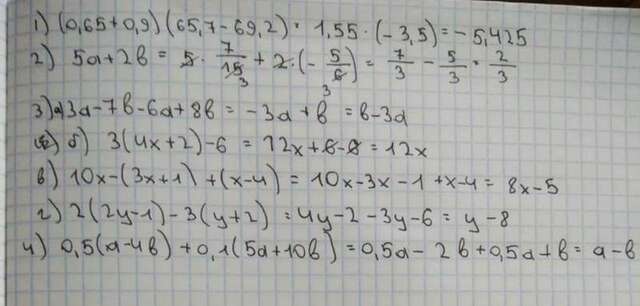 1) (0,65+0,9)(65,7-69,2) = 1,55·(-3,5) = -5,425
2) 5a+2в = 5·7/15 3 + 2·(-5/6 3) = 7/3 - 5/3 = 2/3
3) а) 3a-7в-6a+8в = -3a+в = в-3a
б) 3(4x+2)-6 = 12x+6-6 = 12x
в) 10x-(3x+1)+(x-4) = 10x-3x-1+x-4 = 8x-5
г) 2(2y-1)-3(y+2) = 4y-2-3y-6 = y-8
4) 0,5(a-4в)+0,1(5a+10в) = 0,5a-2в+0,5a+в = a-в